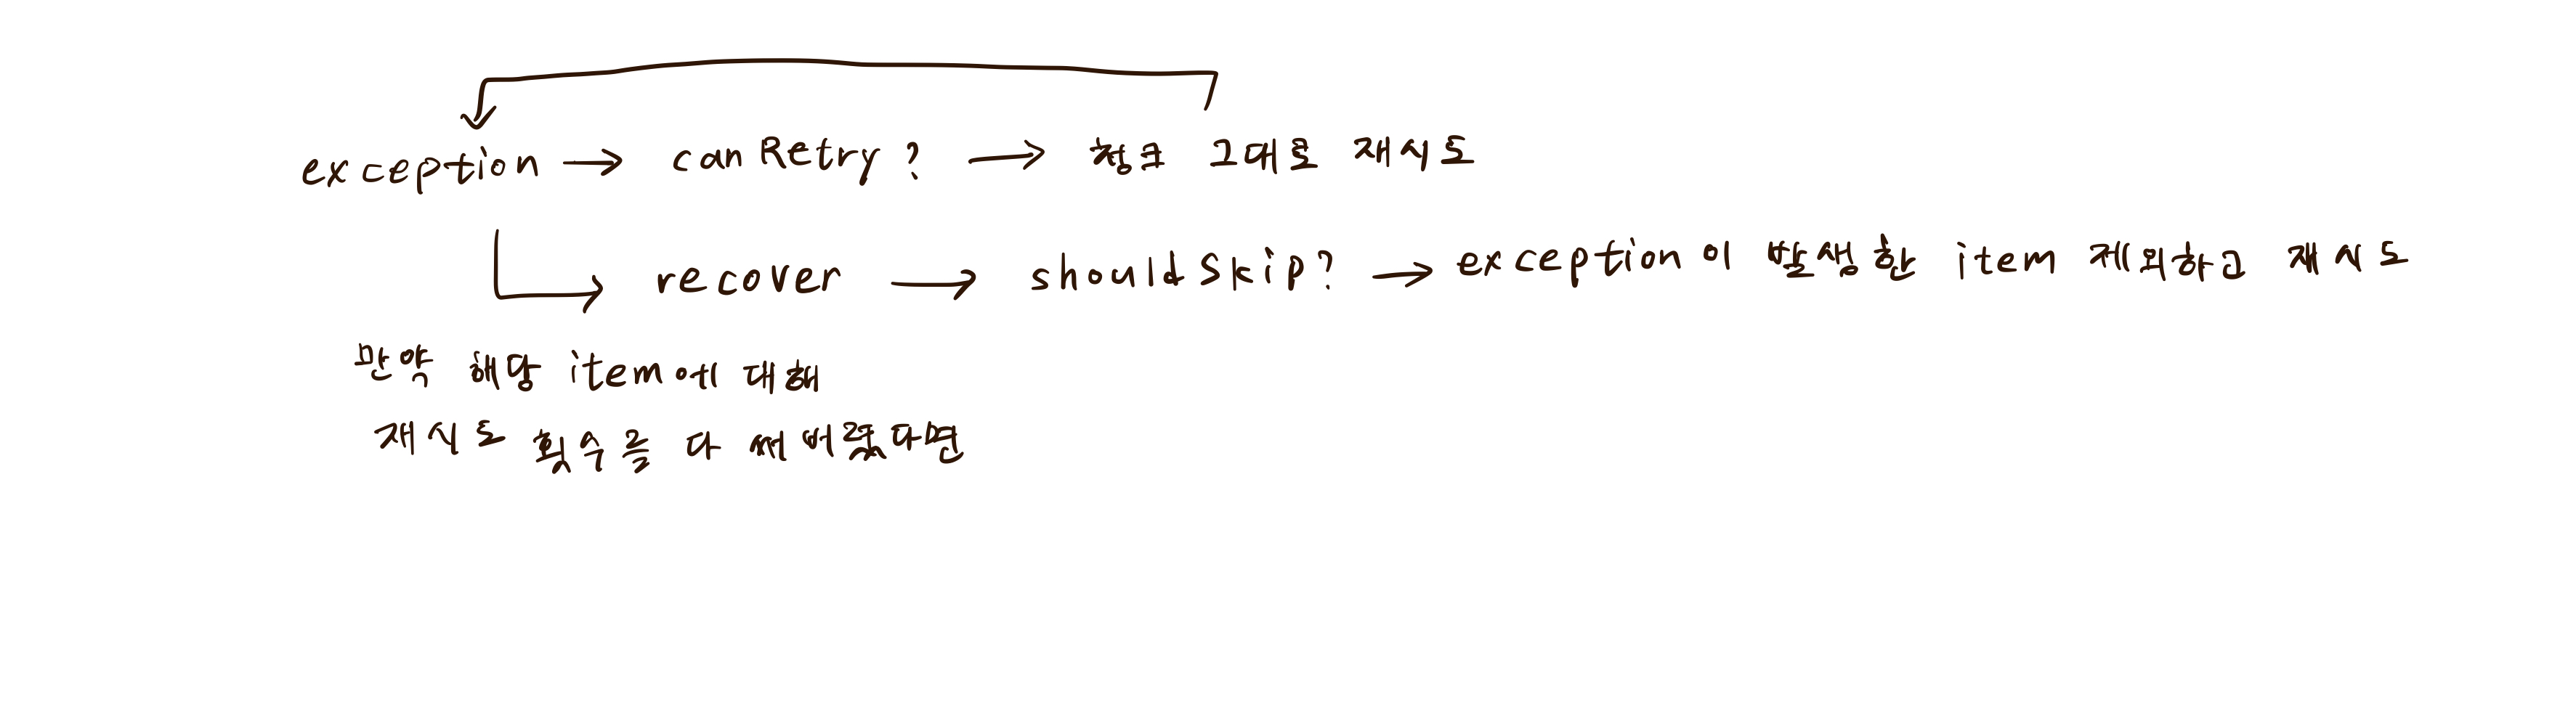 exception → canRetry? → 청크 그대로 재시도
recover → shouldSkip? → exception이 발생한 item 제외하고 재시도
만약 해당 item에 대해
재시도 횟수를 다 써버렸다면